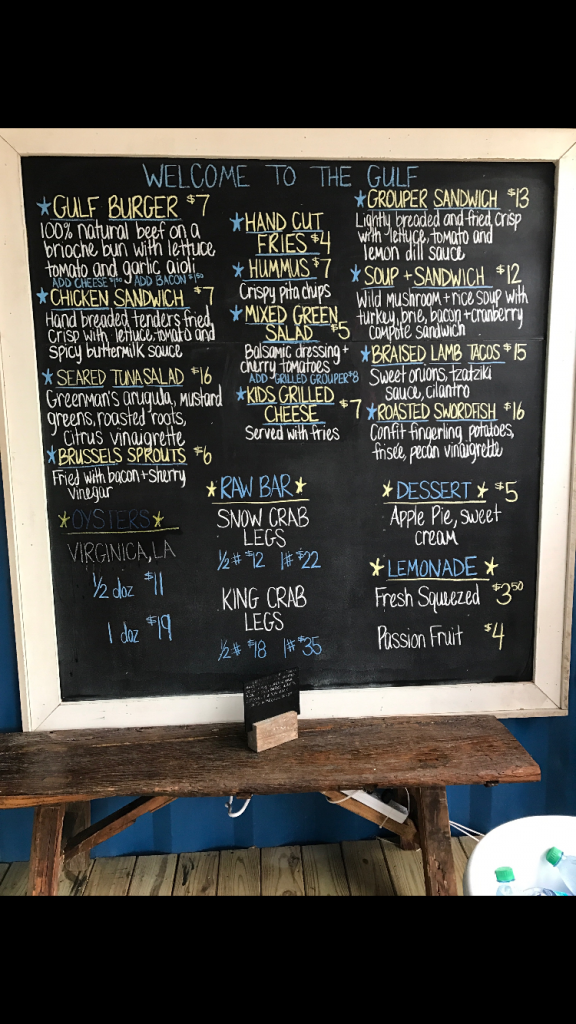 WELCOME TO THE GULF
★GULF BURGER $7
100% natural beef on a
brioche bun with lettuce
tomato and garlic aioli
ADD CHEESE $1.50 ADD BACON $1.50
★CHICKEN SANDWICH $7
Hand breaded tenders fried
crisp with lettuce, tomato and
spicy buttermilk sauce
★SEARED TUNA SALAD $16
Greenman's arugula, mustard
greens, roasted roots,
Citrus vinaigrette
★BRUSSELS SPROUTS $6
Fried with bacon + sherry
vinegar
★OYSTERS★
VIRGINICA, LA
½ doz $11
1 doz $19
★HAND CUT
FRIES $4
★HUMMUS $7
Crispy pita chips
★MIXED GREEN
SALAD $5
Balsamic dressing +
cherry tomatoes
ADD GRILLED GROUPER $8
★KIDS GRILLED
CHEESE $7
Served with fries
★RAW BAR★
SNOW CRAB
LEGS
½# $12 1# $22
KING CRAB
LEGS
½# $18 1# $35
★GROUPER SANDWICH $13
Lightly breaded and fried crisp
with lettuce, tomato and
lemon dill sauce
★SOUP + SANDWICH $12
Wild mushroom + rice soup with
turkey, brie, bacon + cranberry
compote sandwich
★BRAISED LAMB TACOS $15
Sweet onions, tzatziki
sauce, cilantro
★ROASTED SWORDFISH $16
Confit fingerling potatoes,
frisée, pecan vinaigrette
★DESSERT★ $5
Apple Pie, sweet
cream
★LEMONADE★
Fresh Squeezed $3.50
Passion Fruit $4